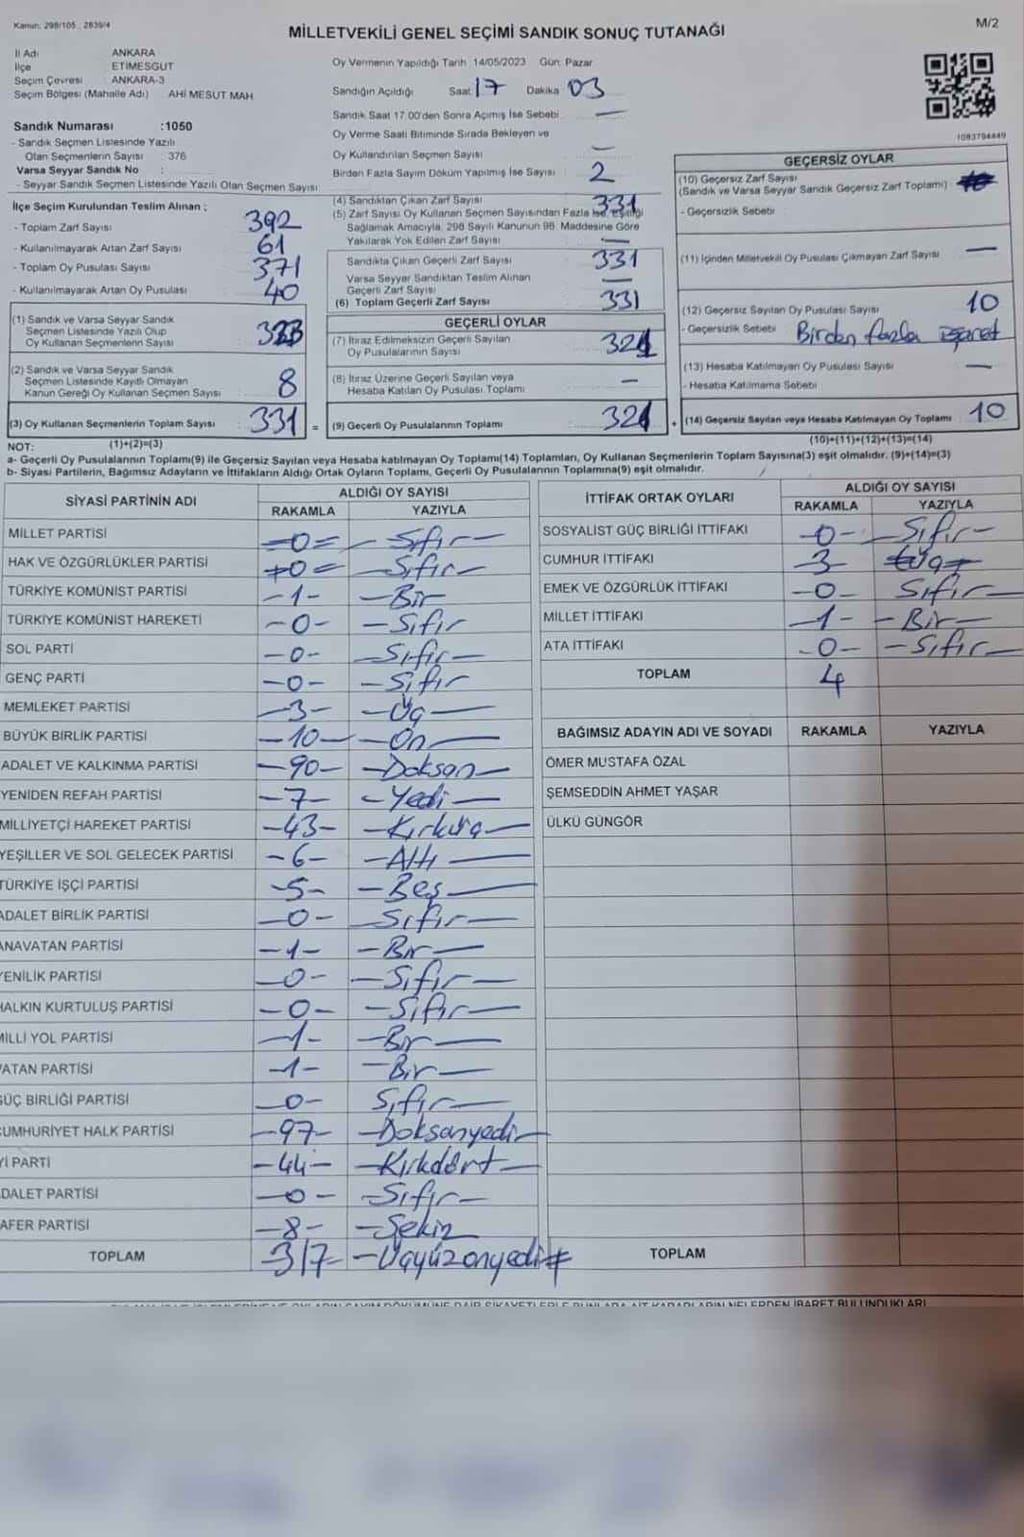 Kanun: 298/105 , 2839/4
M/2
MİLLETVEKİLİ GENEL SEÇİMİ SANDIK SONUÇ TUTANAĞI
İl Adı ANKARA
İlçe ETİMESGUT
Seçim Çevresi ANKARA-3
Seçim Bölgesi (Mahalle Adı) AHİ MESUT MAH
Sandık Numarası :1050
- Sandık Seçmen Listesinde Yazılı
Olan Seçmenlerin Sayısı : 376
Varsa Seyyar Sandık No :
- Seyyar Sandık Seçmen Listesinde Yazılı Olan Seçmen Sayısı:
Oy Vermenin Yapıldığı Tarih :14/05/2023 Gün: Pazar
Sandığın Açıldığı Saat 17 Dakika 03
Sandık Saat 17.00'den Sonra Açılmış İse Sebebi : —
Oy Verme Saati Bitiminde Sırada Bekleyen ve
Oy Kullandırılan Seçmen Sayısı —
Birden Fazla Sayım Döküm Yapılmış İse Sayısı : 2
1083794449
İlçe Seçim Kurulundan Teslim Alınan ;
- Toplam Zarf Sayısı 392
- Kullanılmayarak Artan Zarf Sayısı 61
- Toplam Oy Pusulası Sayısı 371
- Kullanılmayarak Artan Oy Pusulası 40
(1) Sandık ve Varsa Seyyar Sandık
Seçmen Listesinde Yazılı Olup
Oy Kullanan Seçmenlerin Sayısı 323
(2) Sandık ve Varsa Seyyar Sandık
Seçmen Listesinde Kayıtlı Olmayan
Kanun Gereği Oy Kullanan Seçmen Sayısı 8
(3) Oy Kullanan Seçmenlerin Toplam Sayısı 331 =
(4) Sandıktan Çıkan Zarf Sayısı 331
(5) Zarf Sayısı Oy Kullanan Seçmen Sayısından Fazla İse, Eşitliği
Sağlamak Amacıyla, 298 Sayılı Kanunun 98. Maddesine Göre
Yakılarak Yok Edilen Zarf Sayısı —
Sandıkta Çıkan Geçerli Zarf Sayısı 331
Varsa Seyyar Sandıktan Teslim Alınan
Geçerli Zarf Sayısı —
(6) Toplam Geçerli Zarf Sayısı 331
GEÇERLİ OYLAR
(7) İtiraz Edilmeksizin Geçerli Sayılan
Oy Pusulalarının Sayısı 321
(8) İtiraz Üzerine Geçerli Sayılan veya
Hesaba Katılan Oy Pusulası Toplamı —
(9) Geçerli Oy Pusulalarının Toplamı 321 +
GEÇERSİZ OYLAR
(10) Geçersiz Zarf Sayısı
(Sandık ve Varsa Seyyar Sandık Geçersiz Zarf Toplamı)
- Geçersizlik Sebebi :
(11) İçinden Milletvekili Oy Pusulası Çıkmayan Zarf Sayısı —
(12) Geçersiz Sayılan Oy Pusulası Sayısı 10
- Geçersizlik Sebebi Birden fazla işaret
(13) Hesaba Katılmayan Oy Pusulası Sayısı —
- Hesaba Katılmama Sebebi
(14) Geçersiz Sayılan veya Hesaba Katılmayan Oy Toplamı 10
NOT: (1)+(2)=(3) (10)+(11)+(12)+(13)=(14)
a- Geçerli Oy Pusulalarının Toplamı(9) ile Geçersiz Sayılan veya Hesaba katılmayan Oy Toplamı(14) Toplamları, Oy Kullanan Seçmenlerin Toplam Sayısına(3) eşit olmalıdır. (9)+(14)=(3)
b- Siyasi Partilerin, Bağımsız Adayların ve İttifakların Aldığı Ortak Oyların Toplamı, Geçerli Oy Pusulalarının Toplamına(9) eşit olmalıdır.
SİYASİ PARTİNİN ADI ALDIĞI OY SAYISI
RAKAMLA YAZIYLA
MİLLET PARTİSİ =0= — Sıfır —
HAK VE ÖZGÜRLÜKLER PARTİSİ =0= — Sıfır —
TÜRKİYE KOMÜNİST PARTİSİ -1- — Bir
TÜRKİYE KOMÜNİST HAREKETİ -0- — Sıfır
SOL PARTİ -0- — Sıfır —
GENÇ PARTİ -0- — Sıfır
MEMLEKET PARTİSİ -3- — Üç —
BÜYÜK BİRLİK PARTİSİ -10- — On —
ADALET VE KALKINMA PARTİSİ -90- — Doksan —
YENİDEN REFAH PARTİSİ -7- — Yedi —
MİLLİYETÇİ HAREKET PARTİSİ -43- — Kırküç —
YEŞİLLER VE SOL GELECEK PARTİSİ -6- — Altı —
TÜRKİYE İŞÇİ PARTİSİ -5- — Beş —
ADALET BİRLİK PARTİSİ -0- — Sıfır —
ANAVATAN PARTİSİ -1- — Bir —
YENİLİK PARTİSİ -0- — Sıfır —
HALKIN KURTULUŞ PARTİSİ -0- — Sıfır —
MİLLİ YOL PARTİSİ -1- — Bir —
VATAN PARTİSİ -1- — Bir —
GÜÇ BİRLİĞİ PARTİSİ -0- Sıfır —
CUMHURİYET HALK PARTİSİ -97- — Doksanyedi —
İYİ PARTİ -44- — Kırkdört —
ADALET PARTİSİ -0- — Sıfır —
ZAFER PARTİSİ -8- — Sekiz
TOPLAM 317 — Üçyüzonyedi #
İTTİFAK ORTAK OYLARI ALDIĞI OY SAYISI
RAKAMLA YAZIYLA
SOSYALİST GÜÇ BİRLİĞİ İTTİFAKI -0- — Sıfır —
CUMHUR İTTİFAKI -3- Üç
EMEK VE ÖZGÜRLÜK İTTİFAKI -0- Sıfır —
MİLLET İTTİFAKI -1- — Bir —
ATA İTTİFAKI -0- — Sıfır —
TOPLAM 4
BAĞIMSIZ ADAYIN ADI VE SOYADI RAKAMLA YAZIYLA
ÖMER MUSTAFA ÖZAL
ŞEMSEDDİN AHMET YAŞAR
ÜLKÜ GÜNGÖR
TOPLAM